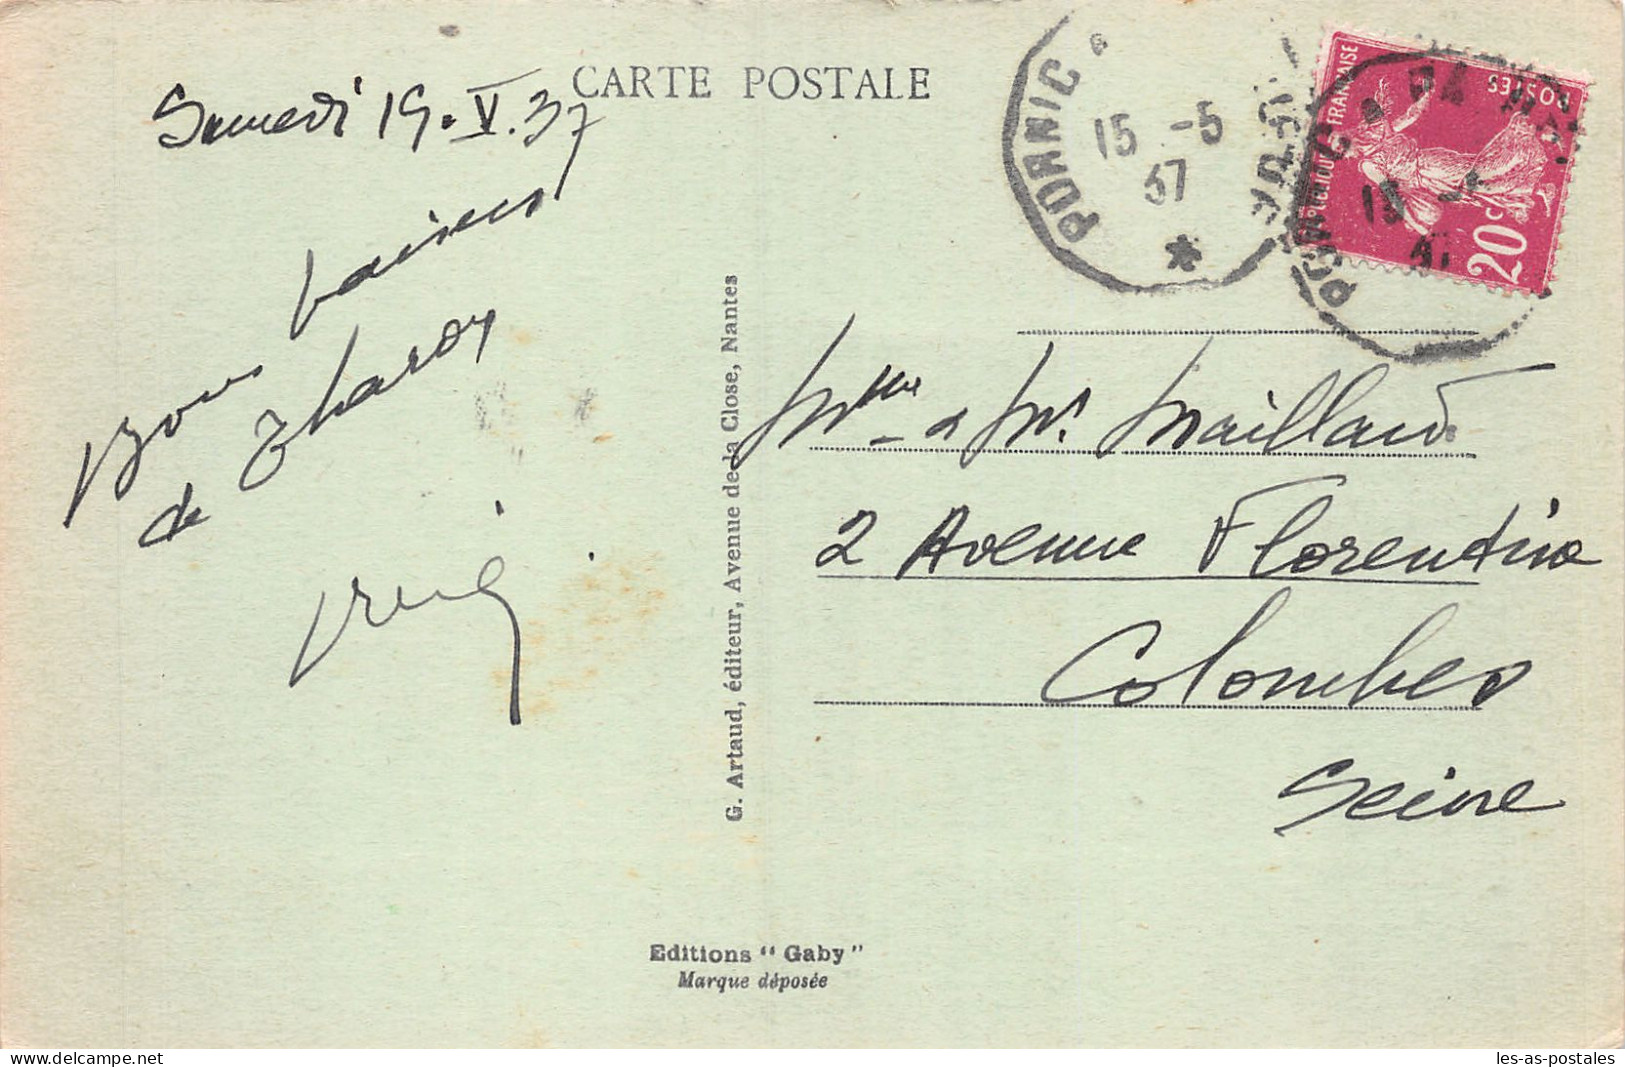 CARTE POSTALE
Samedi 15.V.37
Bons baisers
de
PORNIC
15 -5
37
POSTES
FRANÇAISE
20c
PORNIC
15
G. Artaud, éditeur, Avenue de la Close, Nantes
Mme & Mr Maillard
2 Avenue Florentine
Colombes
Seine
Editions "Gaby"
Marque déposée
les-as-postales